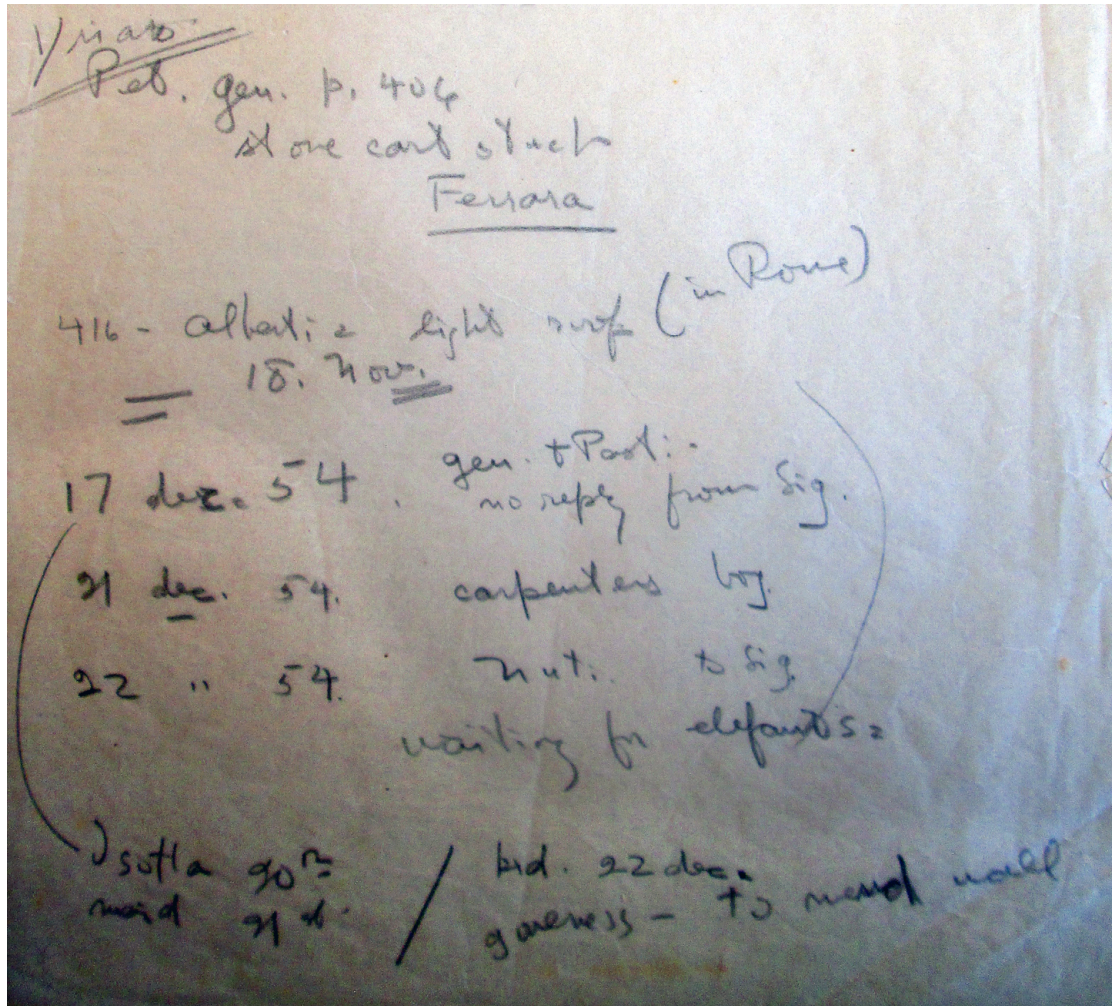 Pet. gen. p. 406
stone cart stuck
Ferrara
416 - Alberti = light roof (in Rome)
18. Nov.
17 dec. 54. gen. + Pasti -
no reply from Sig.
21 dec. 54. carpenters log.
22 " 54. Nuti. to Sig
waiting for elefants =
Isotta 20
maid 21 d.
kid. 22 dec.
to mend wall